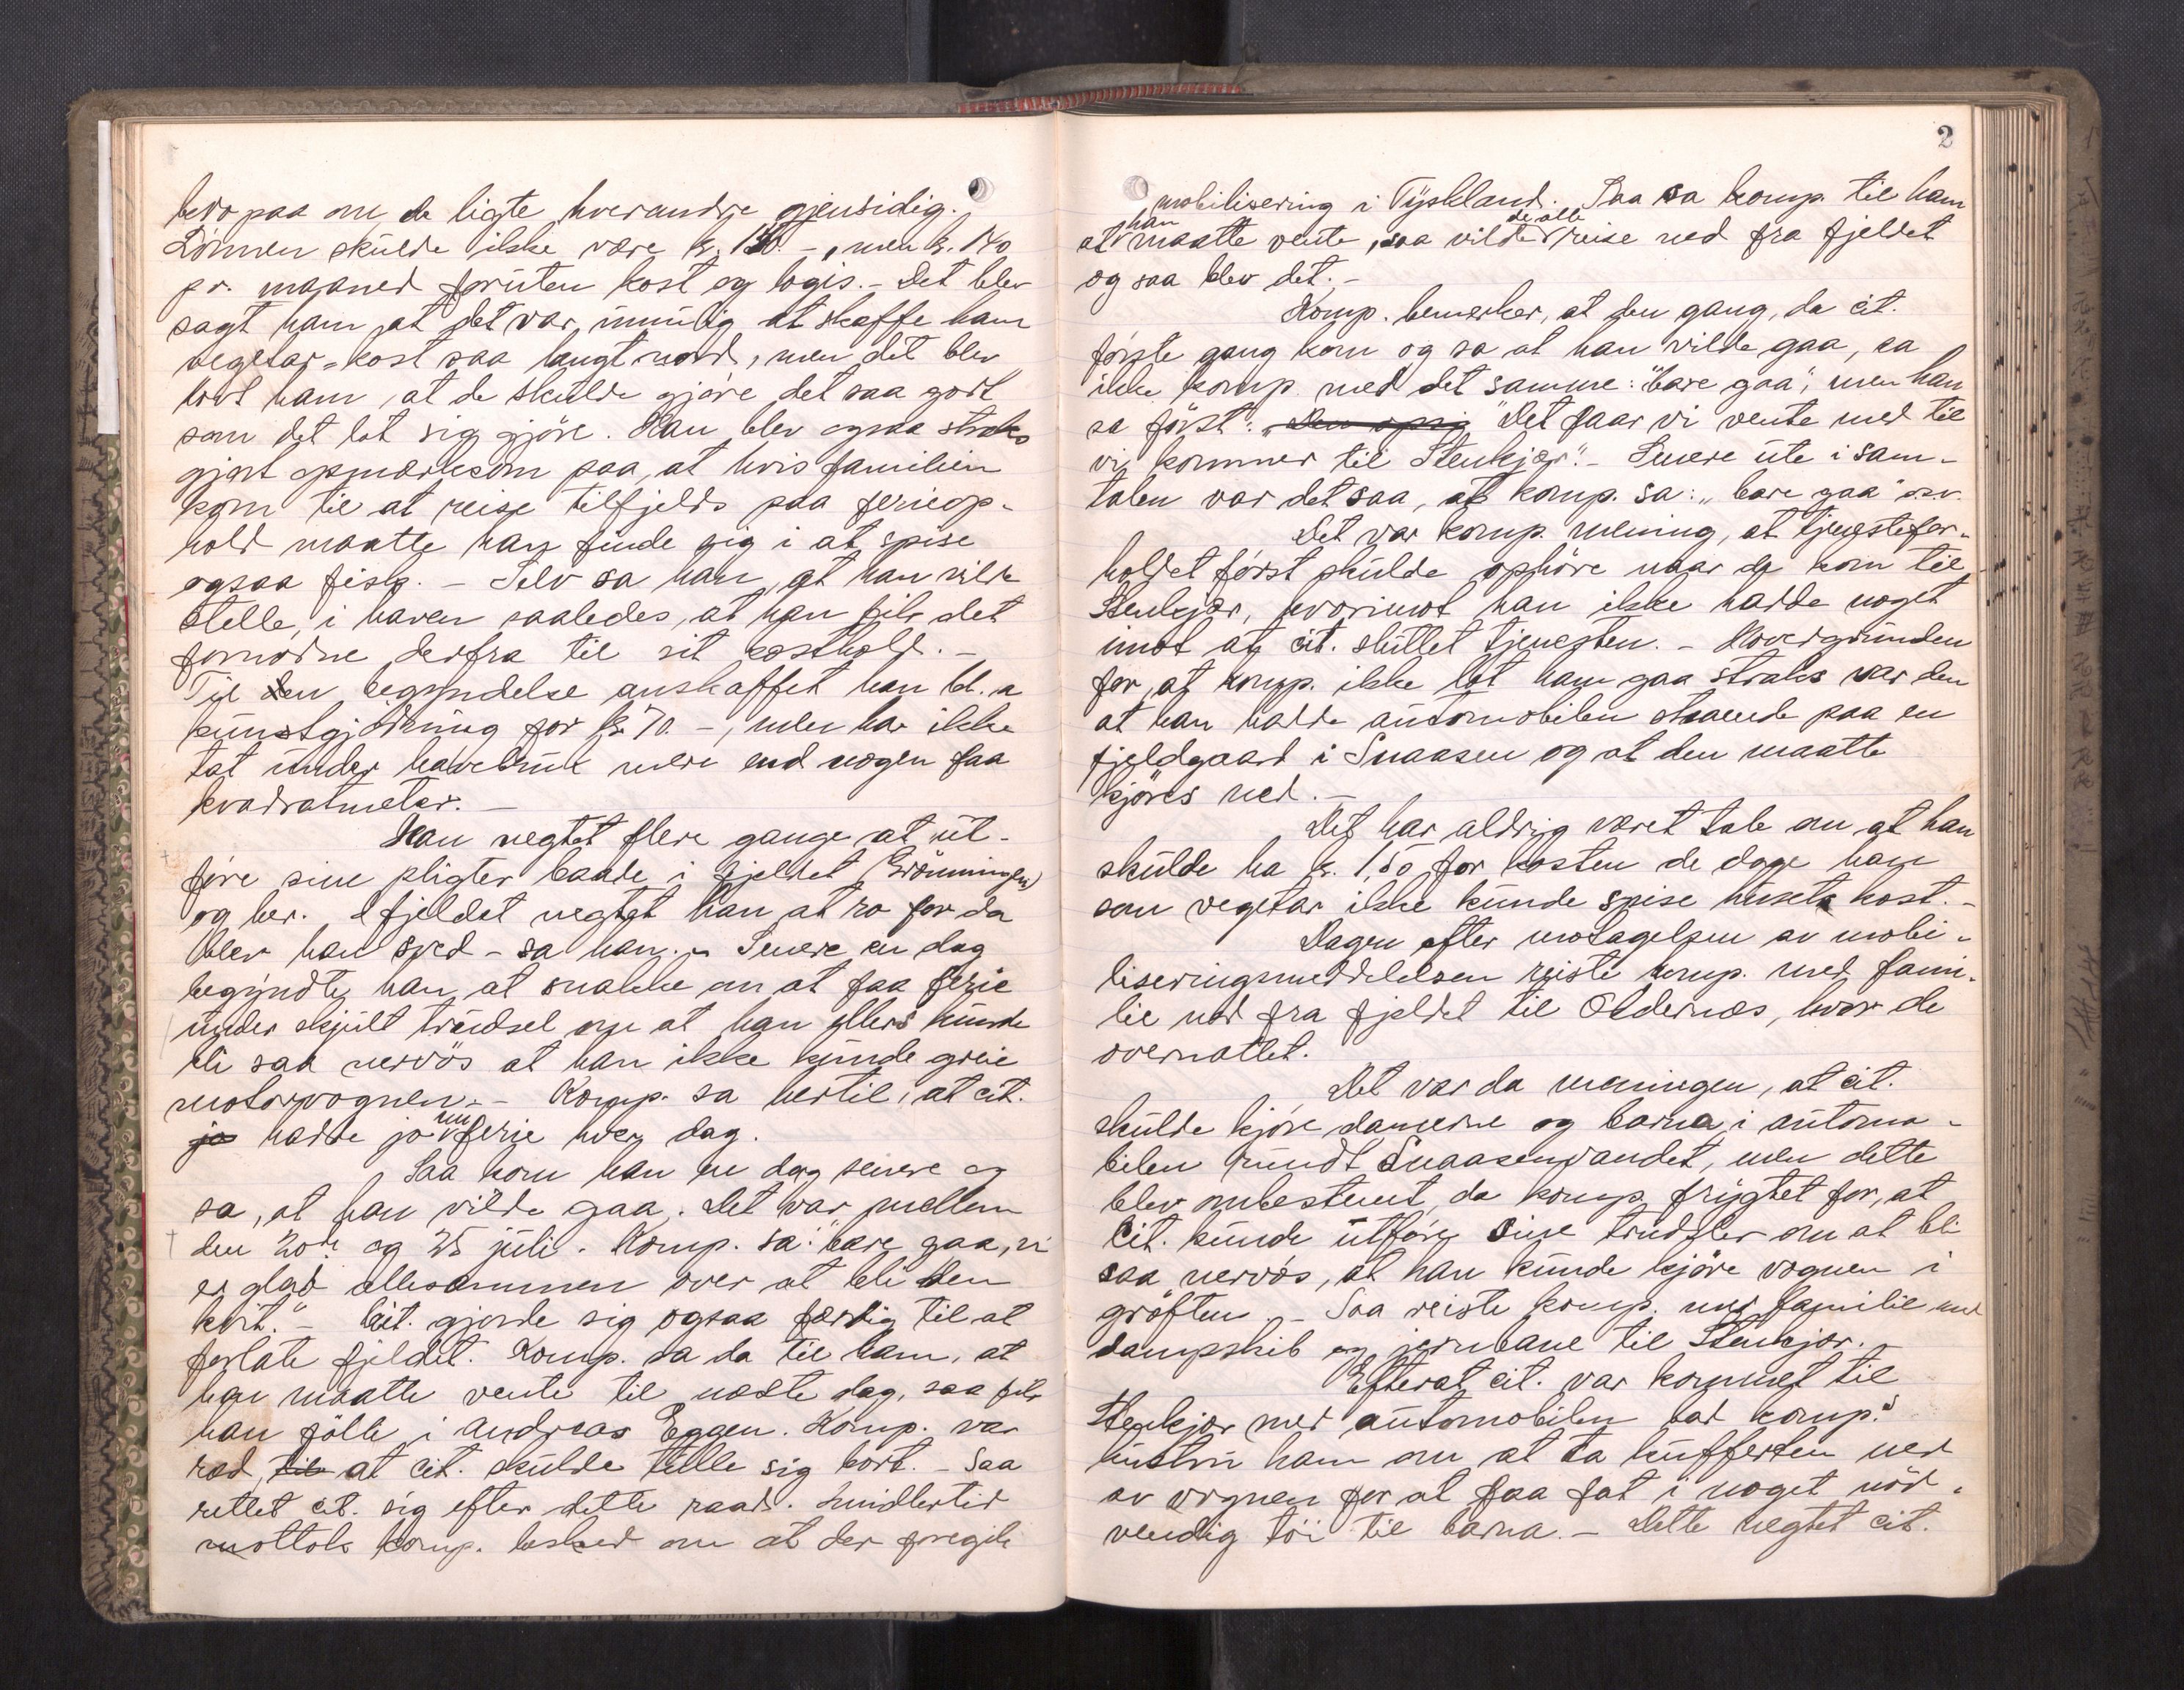 bero paa om de ligte hverandre gjensidig.
Lönnen skulde ikke være kr. 150.-, men kr. 140
pr. maaned foruten kost og logis. - Det blev
sagt ham at det var umulig at skaffe ham
vegetar-kost saa langt nord, men det blev
lovt ham, at de skulde gjöre det saa godt
som det lot sig gjöre. Han blev ogsaa straks
gjort opmerksom paa, at hvis familien
kom til at reise tilfjelds paa ferieop-
hold maatte han finde sig i at spise
ogsaa fisk. - Selv sa han, at han vilde
stelle i haven saaledes, at han fik det
fornødne derfra til sit kosthold. -
Til den begyndelse anskaffet han bl. a
kunstgjödning for kr. 70.-, men har ikke
tat under havebruk mere end nogen faa
kvadratmeter. -
Han negtet flere gange at ut-
føre sine pligter baade i fjeldet (Grönningen)
og her. I fjeldet negtet han at ro for da
blev han sved - sa han. - Senere en dag
begyndte han at snakke om at faa ferie
under skjult trudsel om at han ellers kunde
bli saa nervös at han ikke kunde greie
motorvognen. - Komp. sa hertil, at cit.
jo hadde jo nu ferie hver dag.
Saa kom han en dag senere og
sa, at han vilde gaa. Det var mellem
den 20de og 25 juli. Komp. sa: "bare gaa, vi
er glad allesammen over at bli den
kvit." - Cit. gjorde sig ogsaa færdig til at
forlate fjeldet. Komp. sa da til ham, at
han maatte vente til næste dag, saa fik
han fölle i Andreas Eggen. Komp. var
ræd til at cit. skulde telle sig bort. - Saa
rettet cit. sig efter dette raad. Imidlertid
mottok komp. besked om at der foregik
2
mobilisering i Tyskland. Saa sa komp. til ham
at han maatte vente, saa vilde de alle reise ned fra fjeldet
og saa blev det. -
Komp. bemerker, at den gang, da cit.
förste gang kom og sa at han vilde gaa, sa
ikke komp. med det samme: "bare gaa", men han
sa först: "Det faar vi vente med til
vi kommer til Stenkjær". - Senere ute i sam-
talen var det saa, at komp. sa: "bare gaa" o.s.v.
Det var komp. mening, at tjenestefor-
holdet först skulde ophöre naar de kom til
Stenkjær, hvorimot han ikke hadde noget
imot at cit. sluttet tjenesten. - Hovedgrunden
for, at komp. ikke lot ham gaa straks var den
at han hadde automobilen staaende paa en
fjeldgaard i Snaasen og at den maatte
kjöres ned. -
Det har aldrig været tale om at han
skulde ha kr. 1,50 for kosten de dage han
som vegetar ikke kunde spise husets kost. -
Dagen efter motagelsen av mobi-
liseringsmeddelelsen reiste komp. med fami-
lie ned fra fjeldet til Oldernæs, hvor de
overnattet.
Det var da meningen, at cit.
skulde kjöre damerne og barna i automo-
bilen rundt Snaasenvandet, men dette
blev ombestemt, da komp. frygtet for, at
Cit. kunde utföre sine trudsler om at bli
saa nervös, at han kunde kjöre vognen i
gröften. - Saa reiste komp. med familie med
dampskib og jernbane til Stenkjær.
Efterat cit. var kommet til
Stenkjær med automobilen bad komp.s
hustru ham om at ta kufferten ned
av vognen for at faa fat i noget nöd-
vendig töi til barna. - Dette negtet cit.